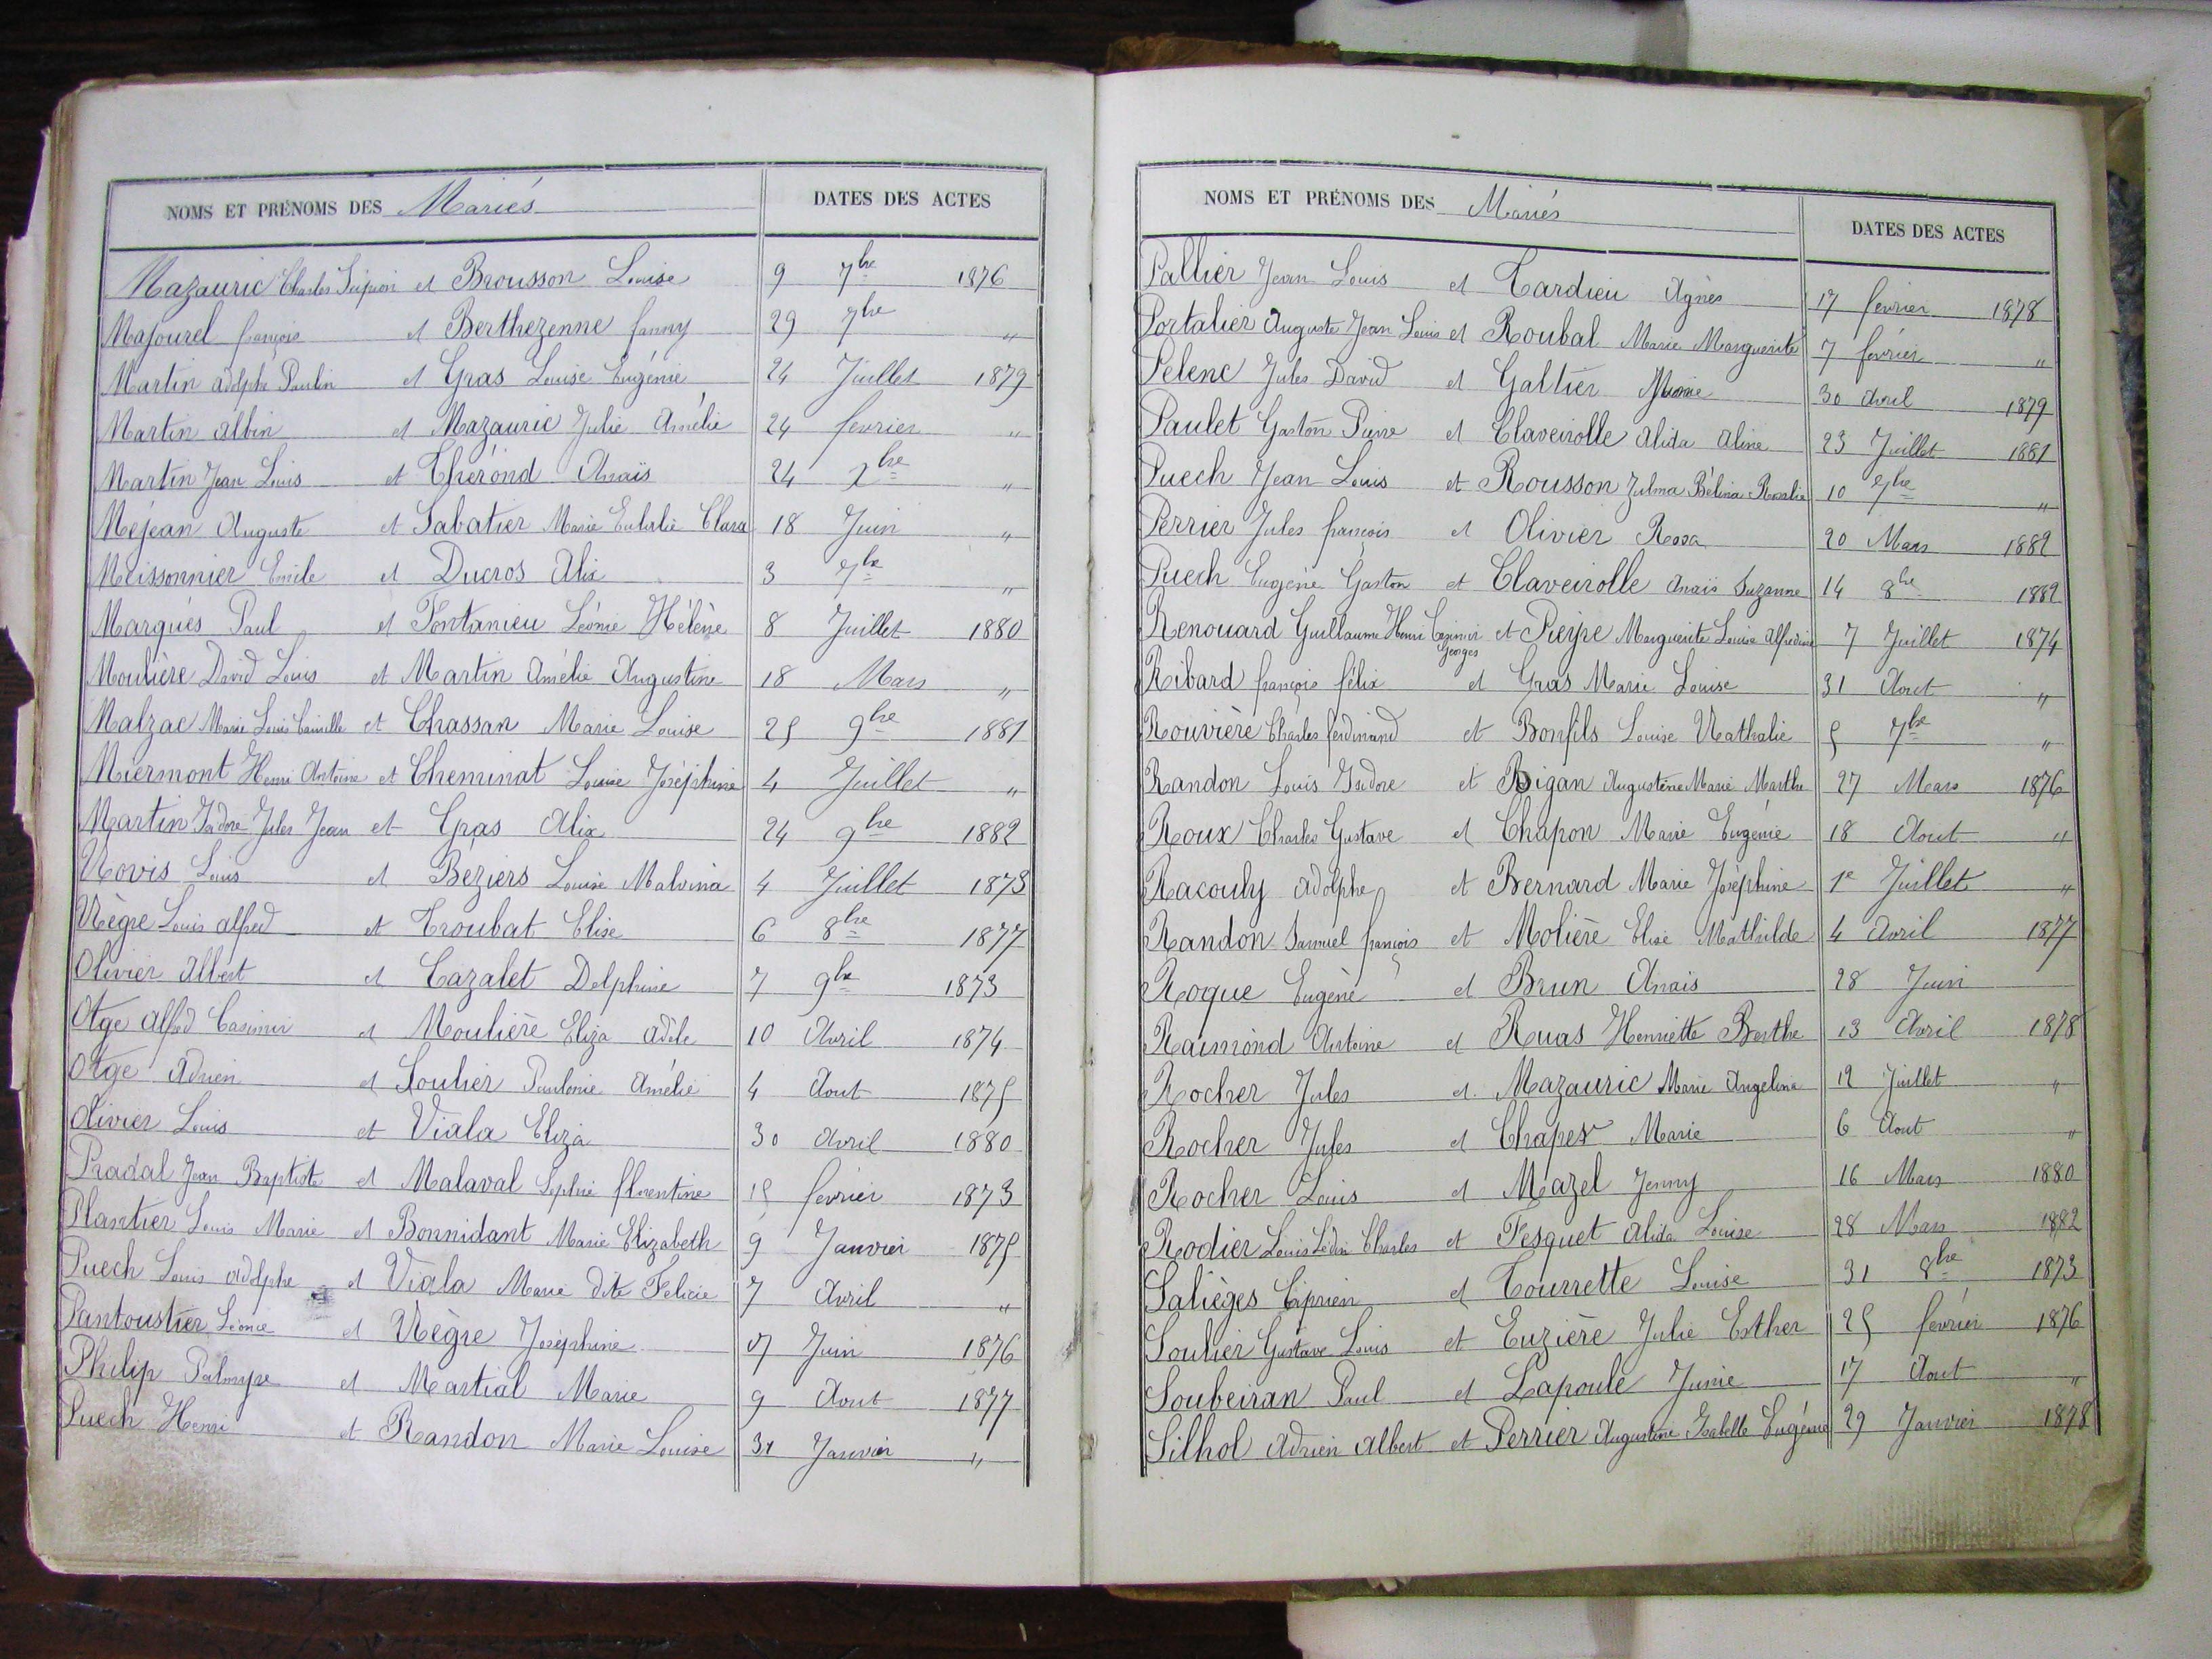 NOMS ET PRÉNOMS DES Mariés DATES DES ACTES
Mazauric Charles Scipion et Brousson Louise 9 7bre 1876
Majourel françois et Berthezenne fanny 29 7bre "
Martin adolphe Paulin et Gras Louise Eugénie 24 Juillet 1879
Martin albin et Mazauric Julie Amélie 24 fevrier "
Martin Jean Louis et Thérond Anaïs 24 "
Méjean Auguste et Sabatier Marie Eulalie Clara 18 Juin "
Meissonnier Emile et Ducros Alix 3 7bre "
Marquès Paul et Fontanieu Léonie Hélène 8 Juillet 1880
Moulière David Louis et Martin Amélie Augustine 18 Mars "
Malzac Marie Louis Camille et Chassan Marie Louise 25 9bre 1881
Miermont Henri Antoine et Cheminat Louise Joséphine 4 Juillet "
Martin Isidore Jules Jean et Gras Alix 24 9bre 1882
Novis Louis et Beziers Louise Malvina 4 Juillet 1873
Nègre Louis alfred et Troubat Elise 6 8bre 1877
Olivier Albert et Cazalet Delphine 7 9bre 1873
Atge alfred Casimir et Moulière Eliza adèle 10 Avril 1874
Atge Adrien et Soulier Paulonie Amélie 4 Aout 1875
Olivier Louis et Viala Eliza 30 Avril 1880
Pradal Jean Baptiste et Malaval Sophie florentine 15 fevrier 1873
Plantier Louis Marie et Bonnidant Marie Elizabeth 9 Janvier 1875
Puech Louis adolphe et Viala Marie dite Felicie 7 Avril "
Pantoustier Léonce et Nègre Joséphine Juin 1876
Philip Palmyre et Martial Marie 9 Aout 1877
Puech Henri et Randon Marie Louise 31 Janvier "
NOMS ET PRÉNOMS DES Mariés DATES DES ACTES
Pallier Jean Louis et Tardieu Agnès 17 fevrier 1878
Portalier Auguste Jean Louis et Roubal Marie Marguerite 7 février "
Pelenc Jules David et Galtier 30 Avril 1879
Paulet Gaston Pierre et Claveirolle alida aline 23 Juillet 1881
Puech Jean Louis et Rousson Zulma Bélina Rosalie 10 7bre "
Perrier Jules françois et Olivier Rosa 20 Mars 1882
Puech Eugène Gaston et Claveirolle Anaïs Suzanne 14 8bre 1882
Renouard Guillaume Henri Casimir Georges et Pieyre Marguerite Louise Alfredine 7 Juillet 1874
Ribard françois félix et Gras Marie Louise 31 Aout "
Rouvière Charles ferdinand et Bonfils Louise Nathalie 5 7bre "
Randon Louis Isidore et Bigan Augustine Marie Marthe 27 Mars 1876
Roux Charles Gustave et Chapon Marie Eugénie 18 Aout "
Racouly Adolphe et Bernard Marie Joséphine 1e Juillet "
Randon Samuel françois et Molière Elise Mathilde 4 Avril 1877
Roque Eugène et Brun Anaïs 28 Juin
Raimond Antoine et Ruas Henriette Berthe 13 Avril 1878
Rocher Jules et Mazauric Marie Angelina 12 Juillet "
Rocher Jules et Marie 6 Aout "
Rocher Louis et Mazel Jenny 16 Mars 1880
Rodier Louis Léon Charles et Fesquet Alida Louise 28 Mars 1882
Salièges Ciprien et Tourrette Louise 31 8bre 1873
Soulier Gustave Louis et Euzière Julie Esther 25 février 1876
Soubeiran Paul et Lapoule Junie 17 Aout "
Silhol Adrien Albert et Perrier Augustine Isabelle Eugénie 29 Janvier 1878